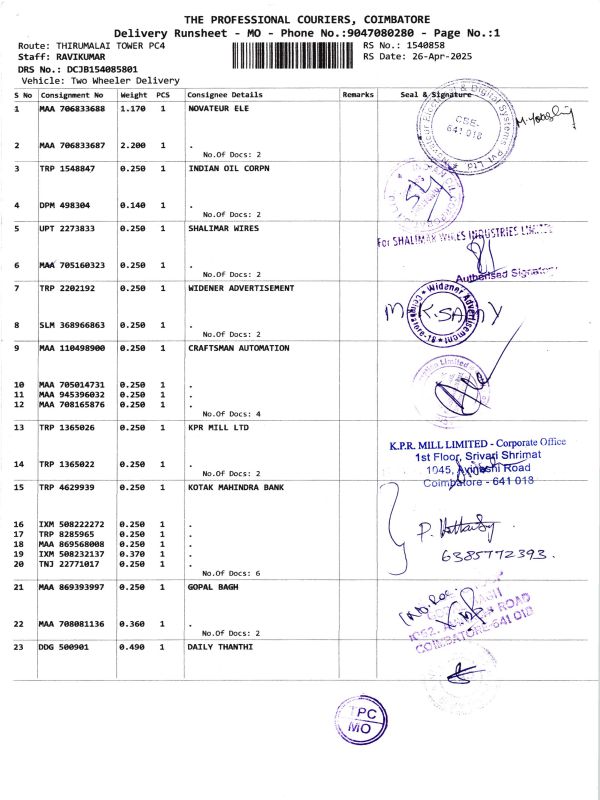 THE PROFESSIONAL COURIERS, COIMBATORE
Delivery Runsheet - MO - Phone No.:9047080280 - Page No.:1
Route: THIRUMALAI TOWER PC4 RS No.: 1540858
Staff: RAVIKUMAR RS Date: 26-Apr-2025
DRS No.: DCJB154085801
Vehicle: Two Wheeler Delivery
S No Consignment No Weight PCS Consignee Details Remarks Seal & Signature
1 MAA 706833688 1.170 1 NOVATEUR ELE
CBE.
641 018
2 MAA 706833687 2.200 1 .
No.Of Docs: 2
3 TRP 1548847 0.250 1 INDIAN OIL CORPN
4 DPM 498304 0.140 1 .
No.Of Docs: 2
5 UPT 2273833 0.250 1 SHALIMAR WIRES
For SHALIMAR WIRES INDUSTRIES LIMITED
6 MAA 705160323 0.250 1 .
No.Of Docs: 2
Authorised Signatory
7 TRP 2202192 0.250 1 WIDENER ADVERTISEMENT
Widener Advertisement
M.K.SAMY
8 SLM 368966863 0.250 1 .
No.Of Docs: 2
9 MAA 110498900 0.250 1 CRAFTSMAN AUTOMATION
10 MAA 705014731 0.250 1 .
11 MAA 945396032 0.250 1 .
12 MAA 708165876 0.250 1 .
No.Of Docs: 4
13 TRP 1365026 0.250 1 KPR MILL LTD
K.P.R. MILL LIMITED - Corporate Office
1st Floor, Srivari Shrimat
14 TRP 1365022 0.250 1 .
1045, Avinashi Road
No.Of Docs: 2
Coimbatore - 641 018
15 TRP 4629939 0.250 1 KOTAK MAHINDRA BANK
16 IXM 508222272 0.250 1 .
17 TRP 8285965 0.250 1 .
18 MAA 869568008 0.250 1 .
19 IXM 508232137 0.370 1 .
6385772393.
20 TNJ 22771017 0.250 1 .
No.Of Docs: 6
21 MAA 869393997 0.250 1 GOPAL BAGH
22 MAA 708081136 0.360 1 .
No.Of Docs: 2
COIMBATORE-641 018
23 DDG 500901 0.490 1 DAILY THANTHI
TPC
MO